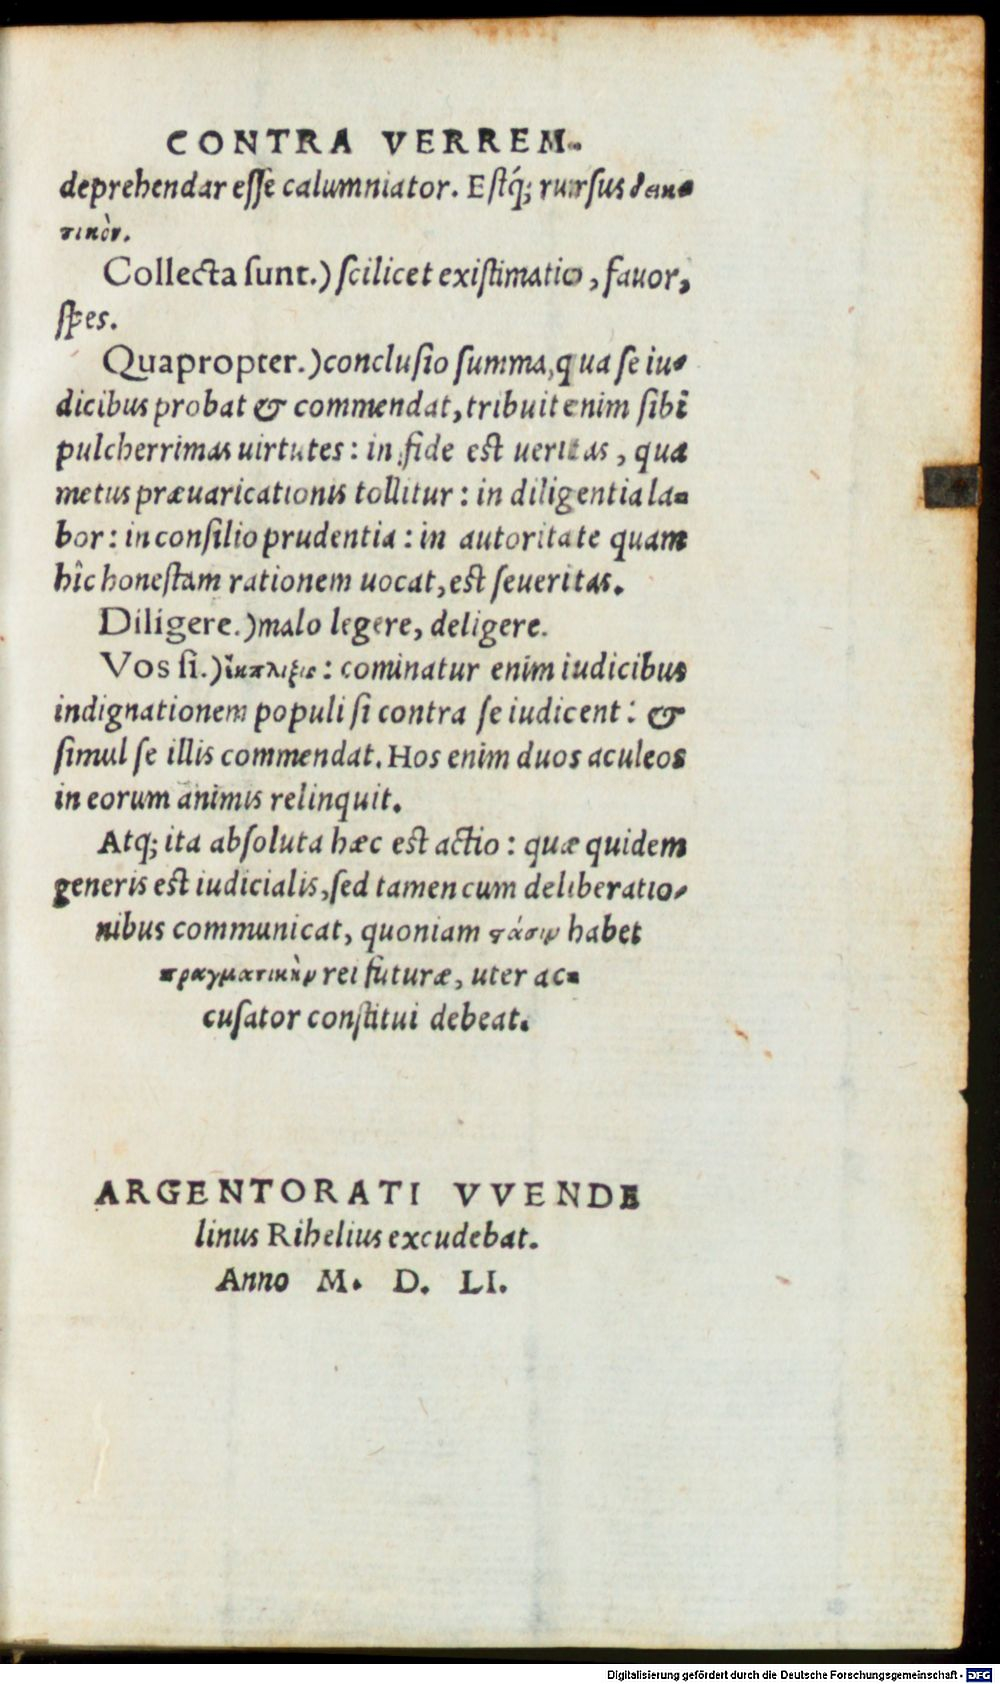 CONTRA VERREM.
deprehendar esse calumniator. Estq́; rursus δεικ-
τικὸν.
Collecta sunt.) scilicet existimatio, fauor,
spes.
Quapropter.) conclusio summa, qua se iu-
dicibus probat & commendat, tribuit enim sibi
pulcherrimas uirtutes: in fide est ueritas, qua
metus præuaricationis tollitur: in diligentia la-
bor: in consilio prudentia: in autoritate quam
hîc honestam rationem uocat, est seueritas.
Diligere.) malo legere, deligere.
Vos si.) ἔκπληξις: cominatur enim iudicibus
indignationem populi si contra se iudicent: &
simul se illis commendat. Hos enim duos aculeos
in eorum animis relinquit.
Atq; ita absoluta hæc est actio: quæ quidem
generis est iudicialis, sed tamen cum deliberatio-
nibus communicat, quoniam ϛάσιν habet
πραγματικὴν rei futuræ, uter ac-
cusator constitui debeat.
ARGENTORATI VVENDE
linus Rihelius excudebat.
Anno M. D. LI.
Digitalisierung gefördert durch die Deutsche Forschungsgemeinschaft - DFG